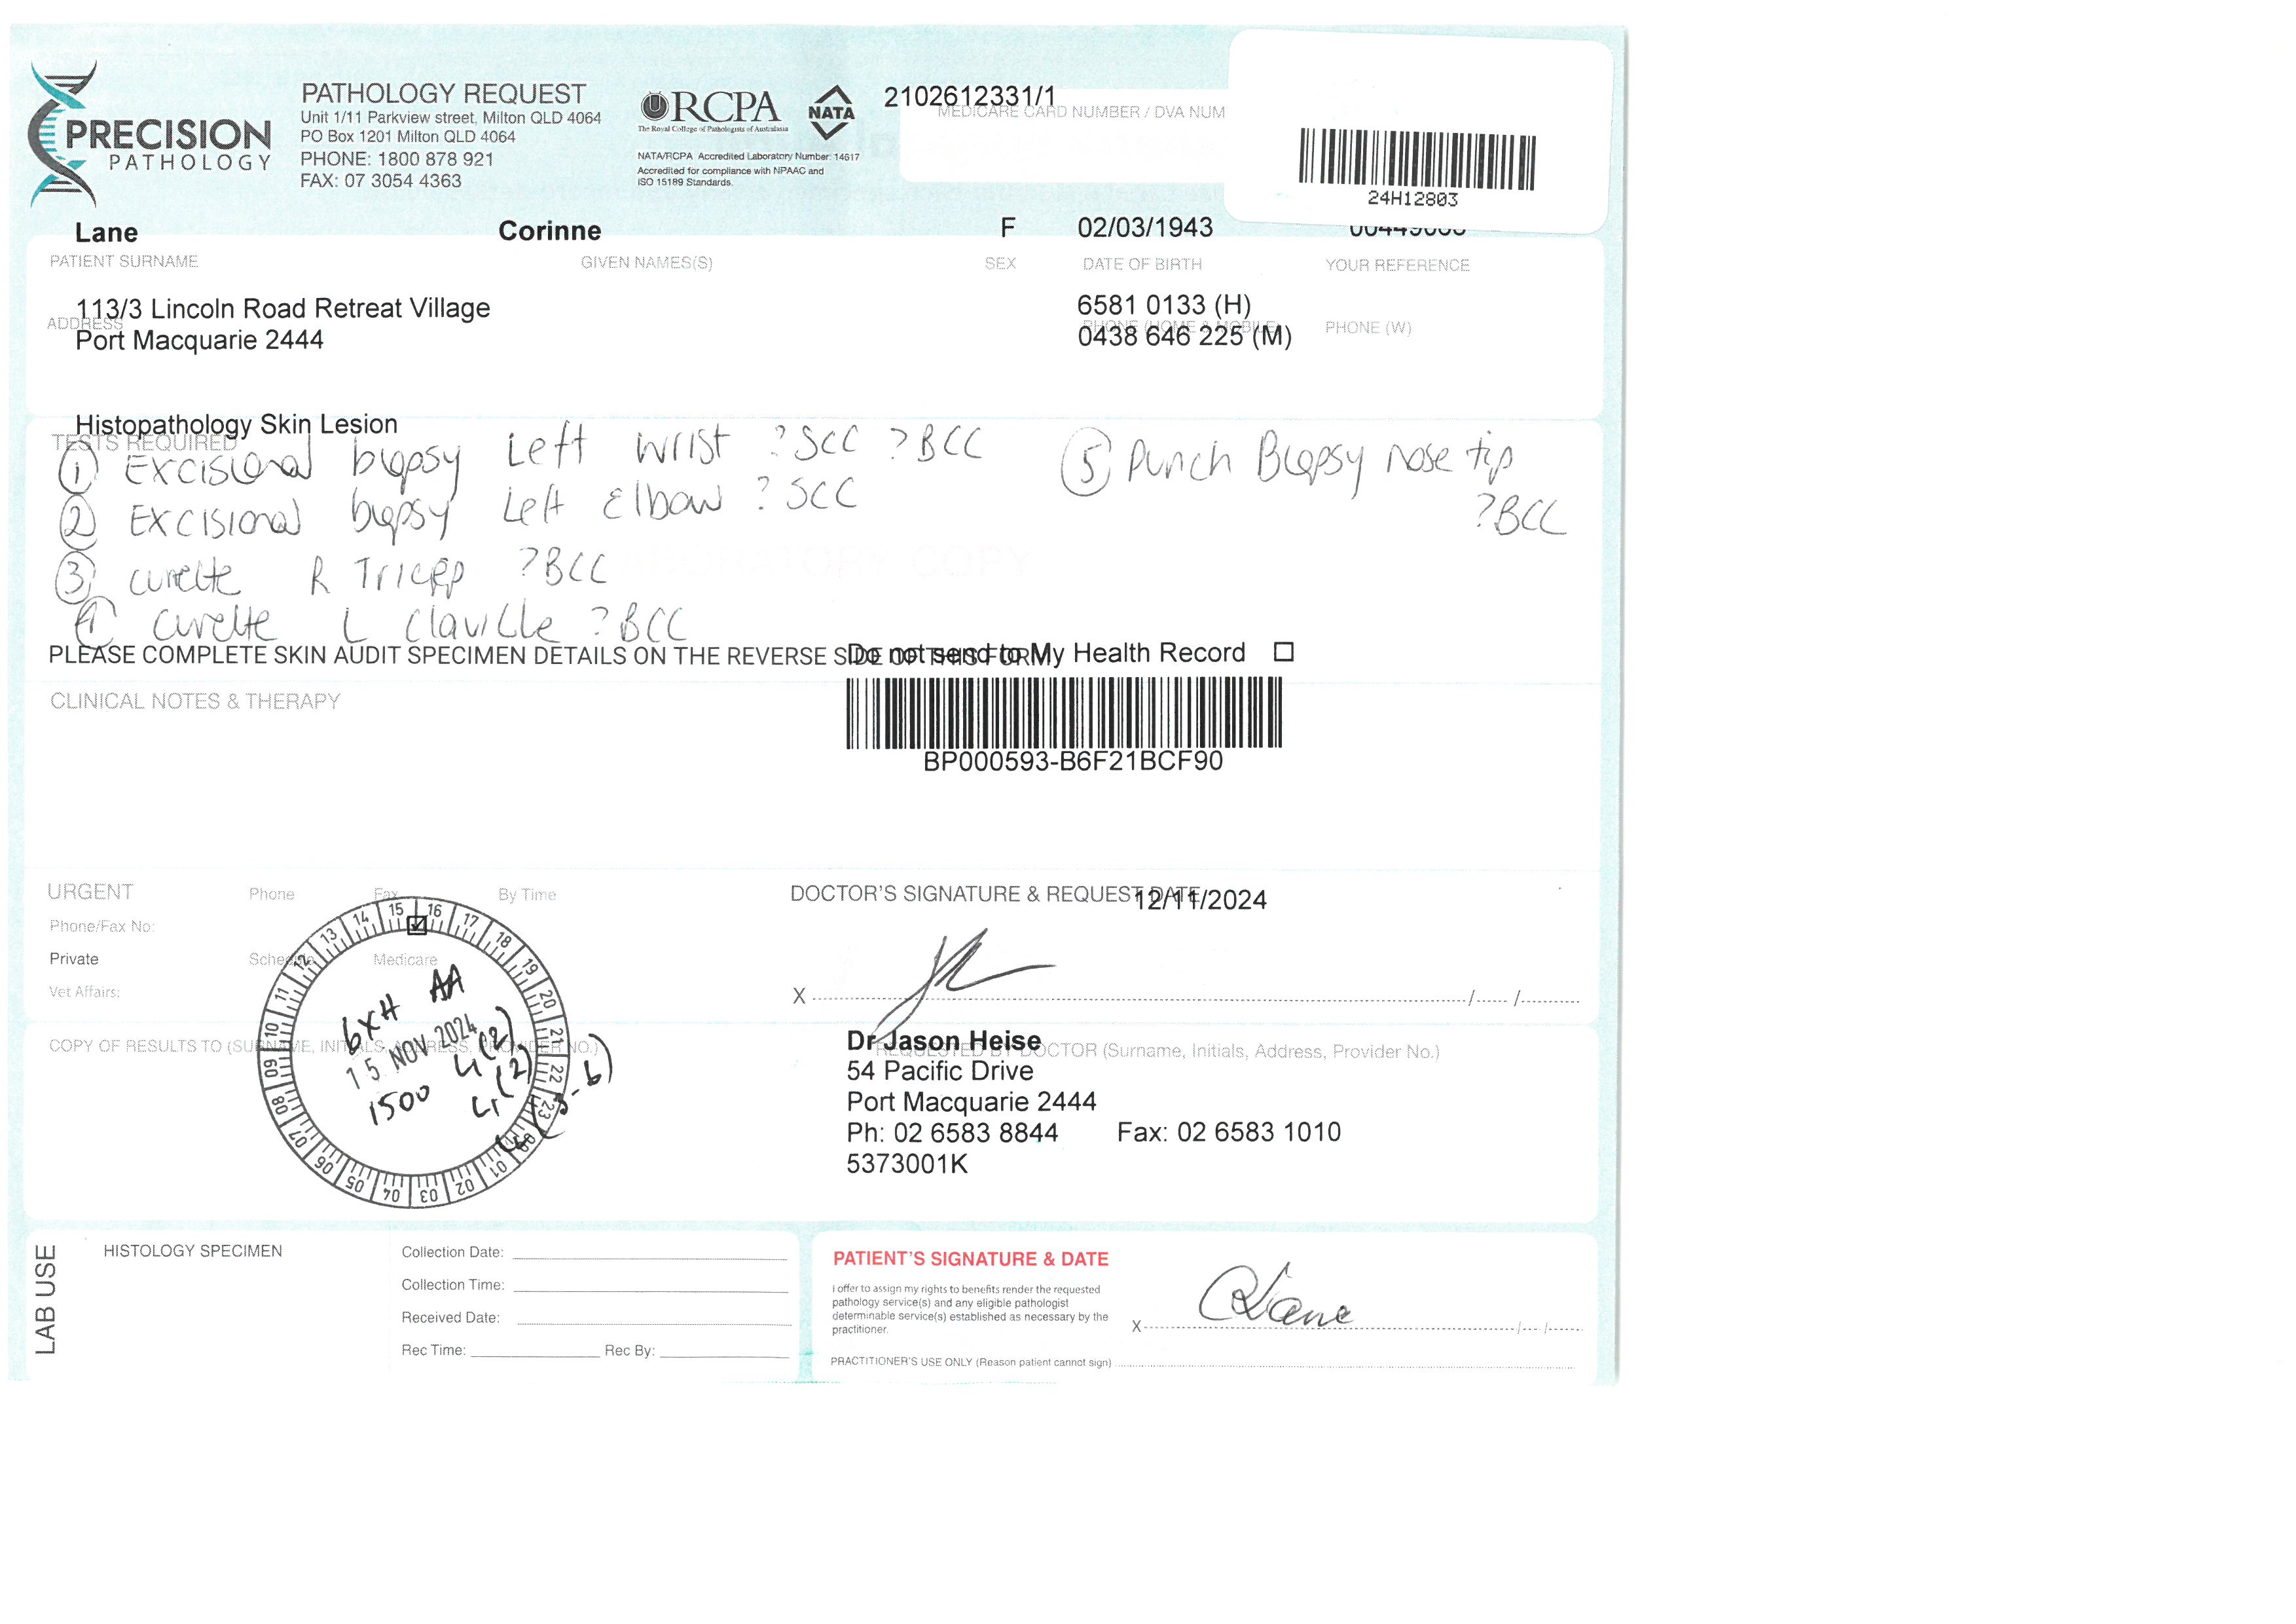 PRECISION
PATHOLOGY
PATHOLOGY REQUEST
Unit 1/11 Parkview street, Milton QLD 4064
PO Box 1201 Milton QLD 4064
PHONE: 1800 878 921
FAX: 07 3054 4363
RCPA
The Royal College of Pathologists of Australasia
NATA
NATA/RCPA Accredited Laboratory Number: 14617
Accredited for compliance with NPAAC and
ISO 15189 Standards.
2102612331/1
MEDICARE CARD NUMBER / DVA NUM
24H12803
Lane Corinne F 02/03/1943
PATIENT SURNAME GIVEN NAMES(S) SEX DATE OF BIRTH YOUR REFERENCE
113/3 Lincoln Road Retreat Village 6581 0133 (H)
ADDRESS PHONE (HOME & MOBILE) PHONE (W)
Port Macquarie 2444 0438 646 225 (M)
Histopathology Skin Lesion
TESTS REQUIRED
1 Excisional biopsy Left wrist ?SCC ?BCC
2 Excisional biopsy Left Elbow ?SCC
3 curette R Tricep ?BCC
4 curette L Clavicle ?BCC
5 Punch Biopsy nose tip
?BCC
LABORATORY COPY
PLEASE COMPLETE SKIN AUDIT SPECIMEN DETAILS ON THE REVERSE SIDE OF THIS FORM
Do not send to My Health Record
CLINICAL NOTES & THERAPY
BP000593-B6F21BCF90
URGENT Phone Fax By Time
Phone/Fax No:
Private Schedule Medicare
Vet Affairs:
DOCTOR'S SIGNATURE & REQUEST DATE 12/11/2024
X / /
COPY OF RESULTS TO (SURNAME, INITIALS, ADDRESS, PROVIDER NO.)
09 10 11 12 13 14 15 16 17 18 19 20 21 22 23 01 02 03 04 05 06 07 08
6xH AA
15 NOV 2024
1500
Dr Jason Heise
REQUESTED BY DOCTOR (Surname, Initials, Address, Provider No.)
54 Pacific Drive
Port Macquarie 2444
Ph: 02 6583 8844 Fax: 02 6583 1010
5373001K
LAB USE
HISTOLOGY SPECIMEN
Collection Date:
Collection Time:
Received Date:
Rec Time: Rec By:
PATIENT'S SIGNATURE & DATE
I offer to assign my rights to benefits render the requested
pathology service(s) and any eligible pathologist
determinable service(s) established as necessary by the
practitioner.
X CLane / /
PRACTITIONER'S USE ONLY (Reason patient cannot sign)